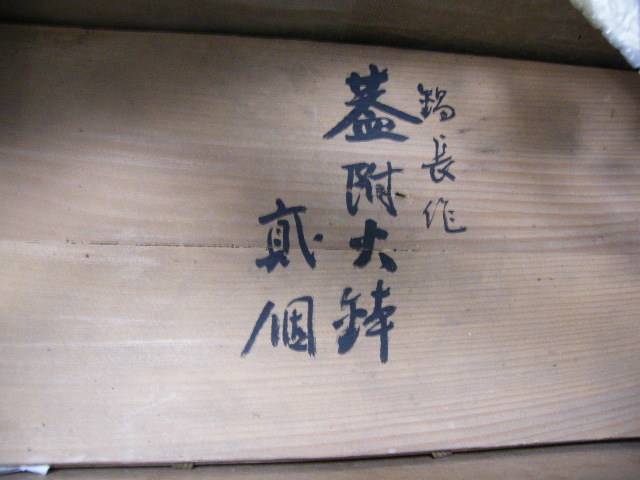 鍋長作
蓋附大鉢
貳個